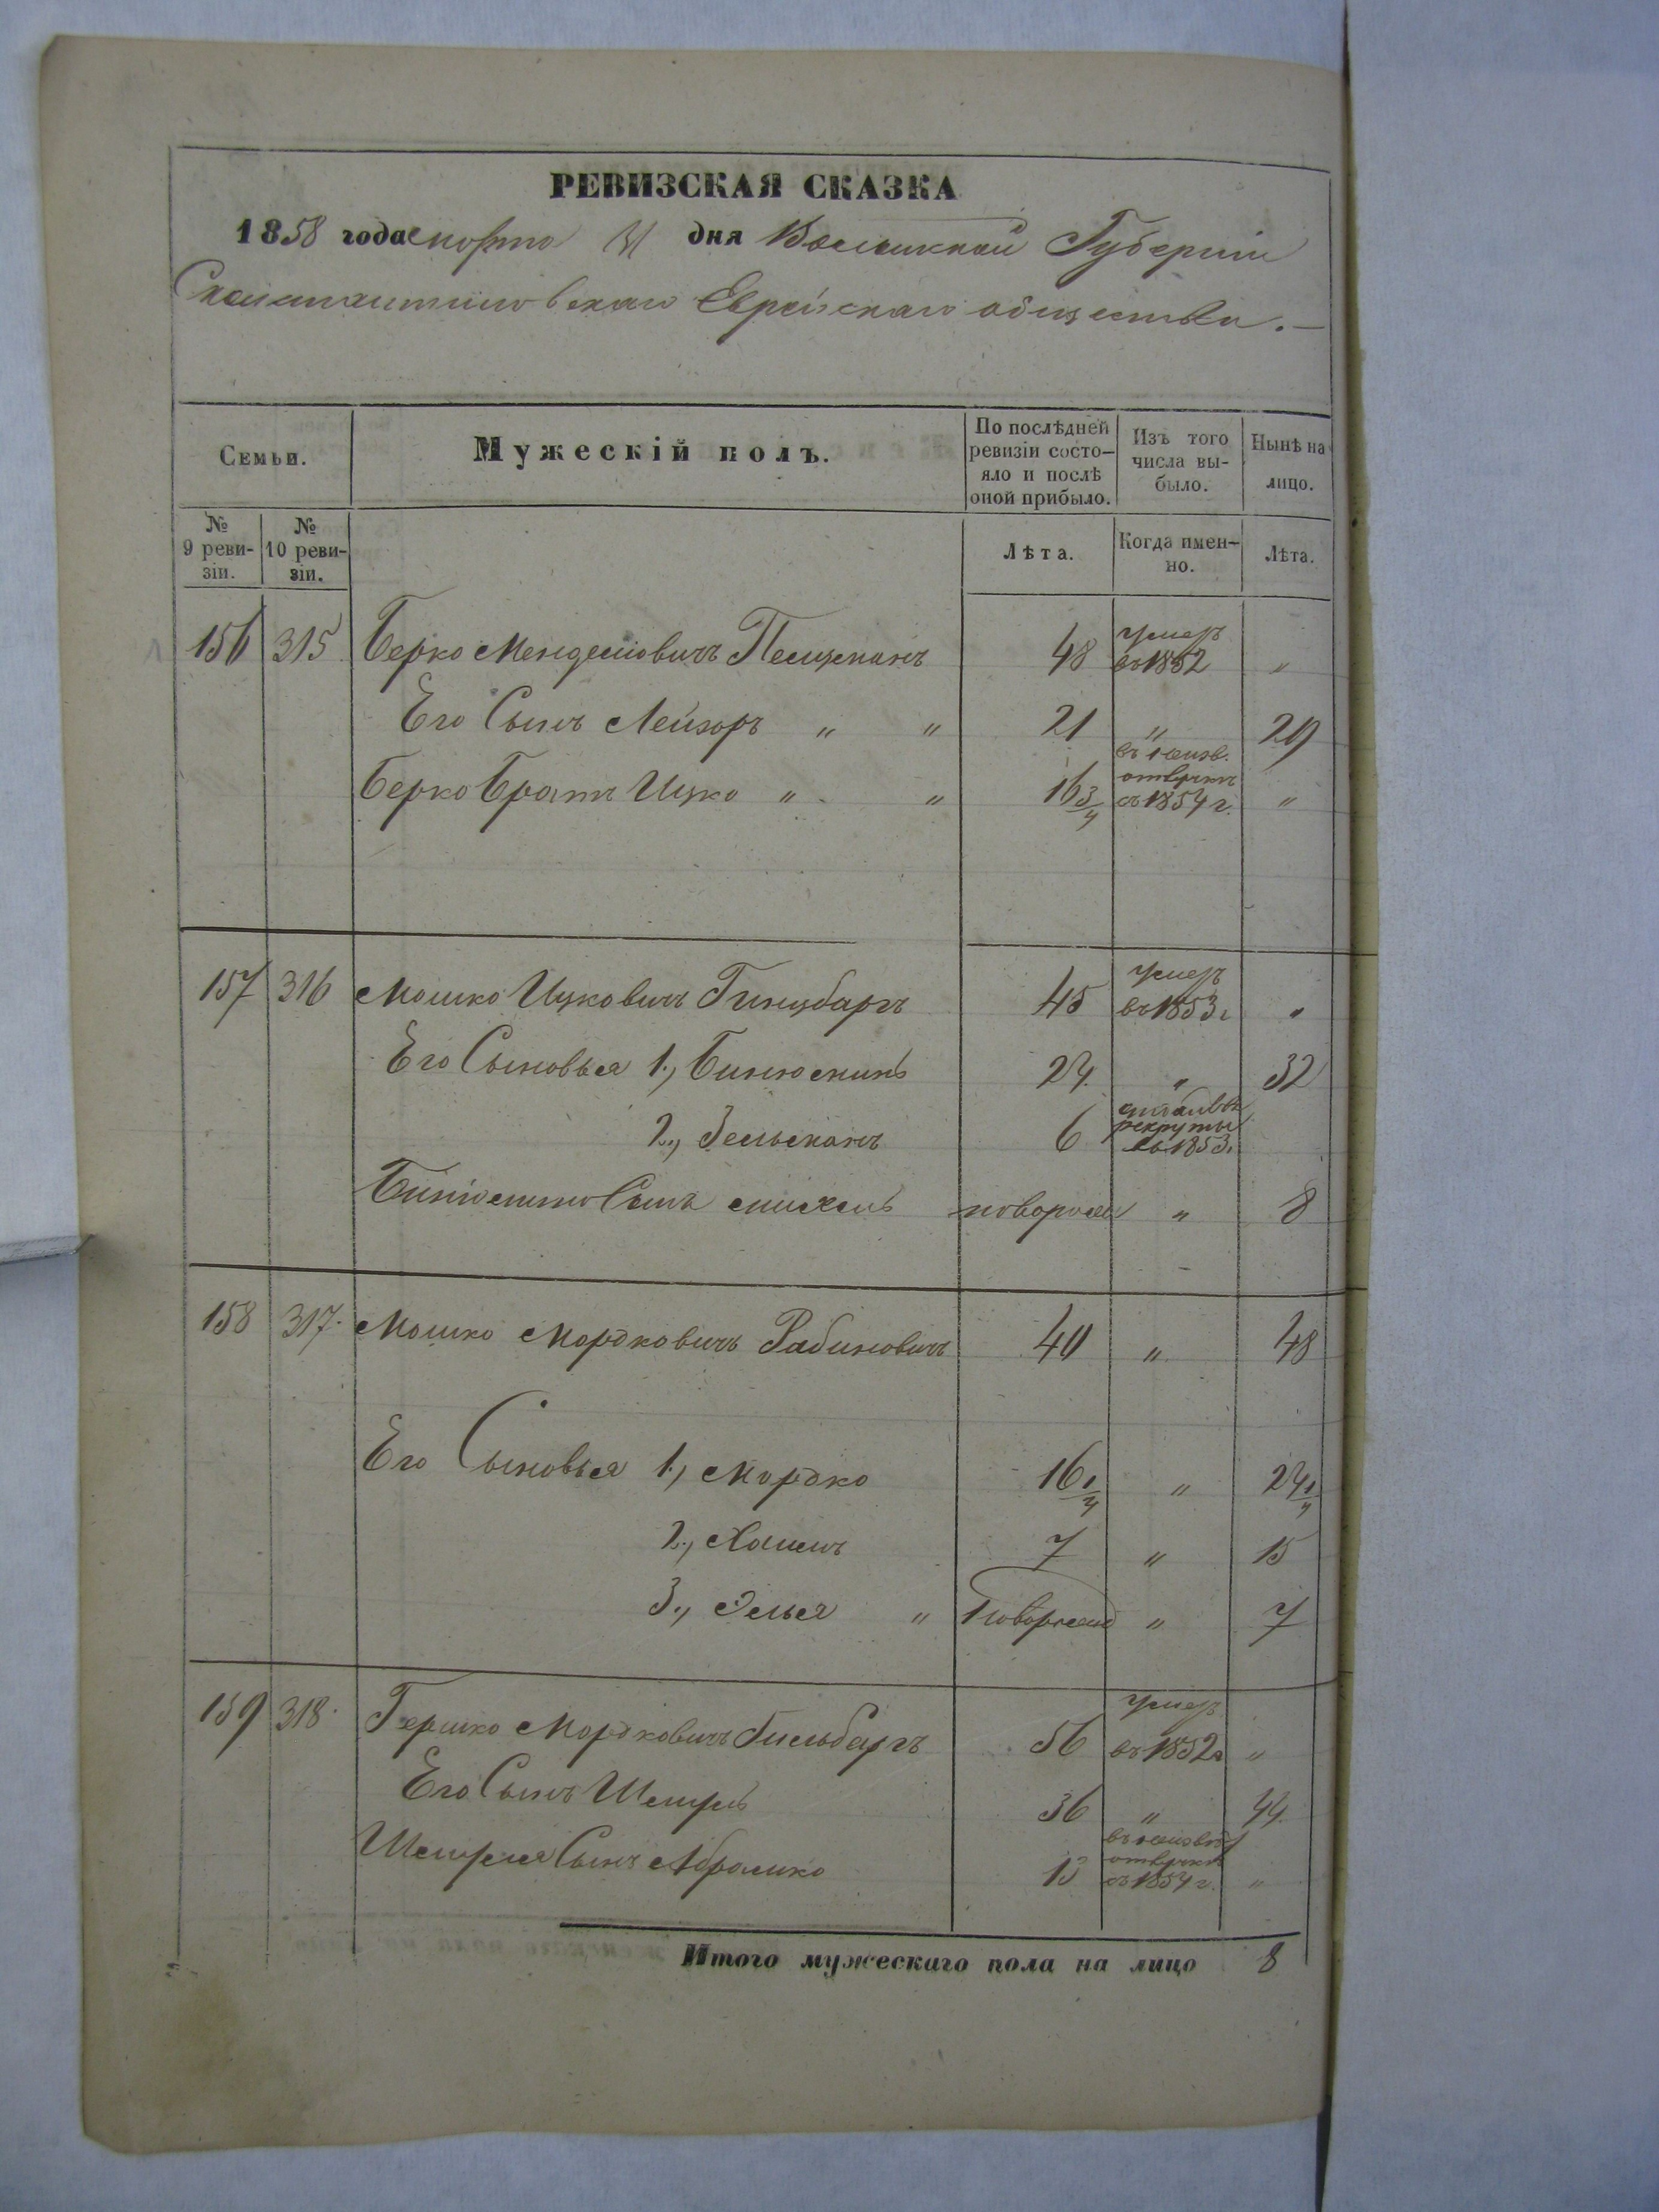 РЕВИЗСКАЯ СКАЗКА
1858 года марта 31 дня Волынской Губернiи
Еврейскаго общества.—
Семьи.
Мужескiй полъ.
По послѣдней ревизiи состояло и послѣ оной прибыло.
Изъ того числа выбыло.
Нынѣ на лицо.
№ 9 ревизiи.
№ 10 ревизiи.
Лѣта.
Когда именно.
Лѣта.
156 315 Берко Менделiовичъ 48 умеръ въ 1852 "
Его Сынъ Лейзоръ " " 21 " 29
Берко Братъ Ицко " " 16 3/4 въ неизв. отлучкѣ съ 1854 г. "
157 316 Мошко Ицковичъ Гинцбаргъ 45 умеръ въ 1853 г "
Его Сыновья 1., 24 " 32
2., Зельманъ 6 рекруты въ 1853.
Сынъ новорожд " 8
158 317. Мошко Мордковичъ Рабиновичъ 40 " 48
Его Сыновья 1., Мордко 16 1/4 " 24 1/4
2., 7 " 15
3., Элья " Новорожд " 7
159 318. Гершко Мордковичъ 56 умеръ въ 1852 г "
Его Сынъ 36 " 44.
Сынъ Абрамко 15 въ неизвѣст отлучкѣ съ 1854 г. "
Итого мужескаго пола на лицо 8